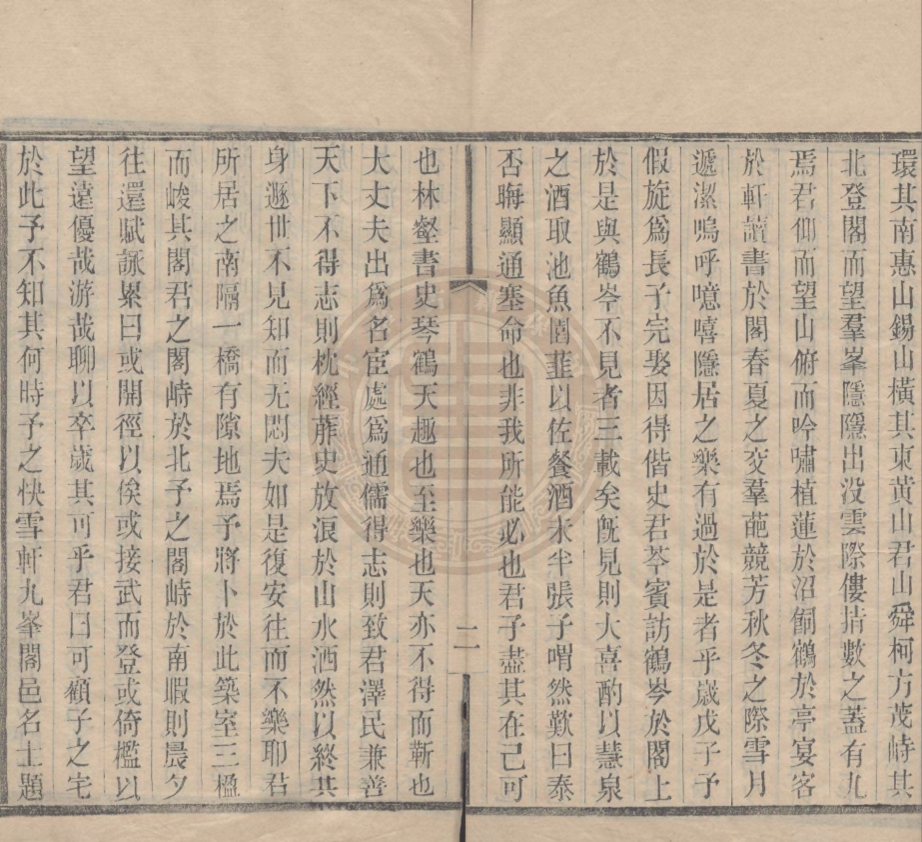 環其南惠山錫山橫其東黃山君山舜柯方茂峙其
北登閣而望羣峯隱隱出没雲際僂指數之蓋有九
焉君仰而望山俯而吟嘯植蓮於沼飼鶴於亭宴客
於軒讀書於閣春夏之交羣葩競芳秋冬之際雪月
遞潔嗚呼噫嘻隱居之樂有過於是者乎歲戊子予
假旋爲長子完娶因得偕史君苓賓訪鶴岑於閣上
於是與鶴岑不見者三載矣旣見則大喜酌以慧泉
之酒取池魚園韭以佐餐酒未半張子喟然歎曰泰
否晦顯通塞命也非我所能必也君子盡其在己可
二
也林壑書史琴鶴天趣也至樂也天亦不得而靳也
大丈夫出爲名宦處爲通儒得志則致君澤民兼善
天下不得志則枕經葄史放浪於山水洒然以終其
身遯世不見知而无悶夫如是復安往而不樂耶君
所居之南隔一橋有隙地焉予將卜於此築室三楹
而峻其閣君之閣峙於北予之閣峙於南暇則晨夕
往還賦詠累日或開徑以俟或接武而登或倚檻以
望遠優哉游哉聊以卒歲其可乎君曰可顧子之宅
於此予不知其何時予之快雪軒九峯閣邑名士題